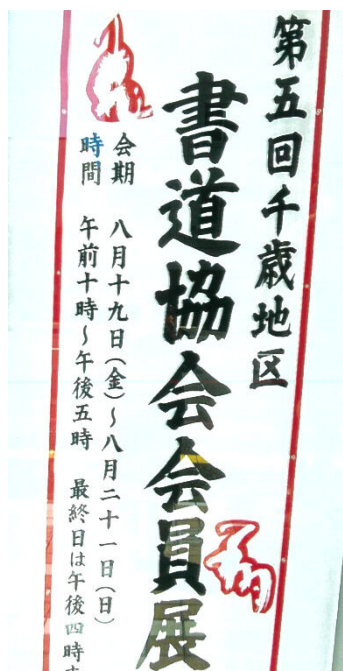 第五回千歳地区
書道協会会員展
会期 八月十九日(金)~八月二十一日(日)
時間 午前十時~午後五時 最終日は午後四時